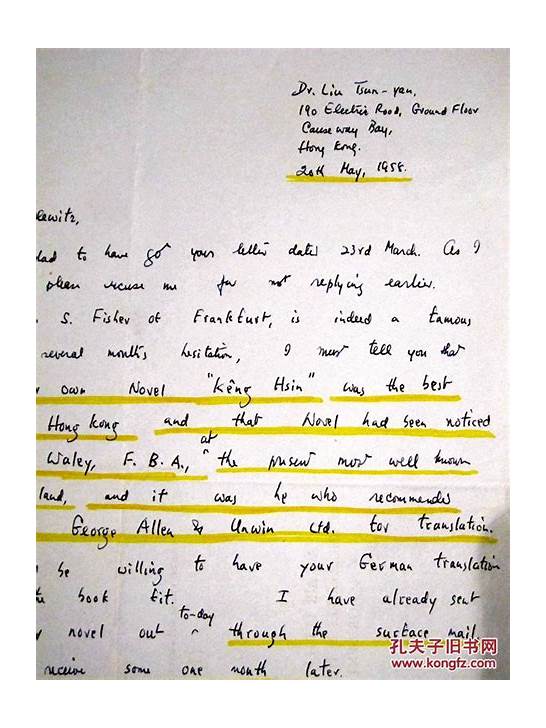 Dr. Liu Tsun-yan,
190 Electric Road, Ground Floor
Causeway Bay,
Hong Kong.
20th May, 1958.
lewitz,
lad to have got your letter dated 23rd March. As I
please excuse me for not replying earlier.
. S. Fisher of Frankfurt, is indeed a famous
several month's hesitation, I must tell you that
own Novel "Kêng Hsin" was the best
Hong Kong and that Novel had been noticed
Waley, F. B. A., at the present most well known
land, and it was he who recommended
George Allen & Unwin Ltd. for translation.
be willing to have your German translation
the book fit. I have already sent
novel out to-day through the surface mail
receive some one month later.
孔夫子旧书网
www.kongfz.com